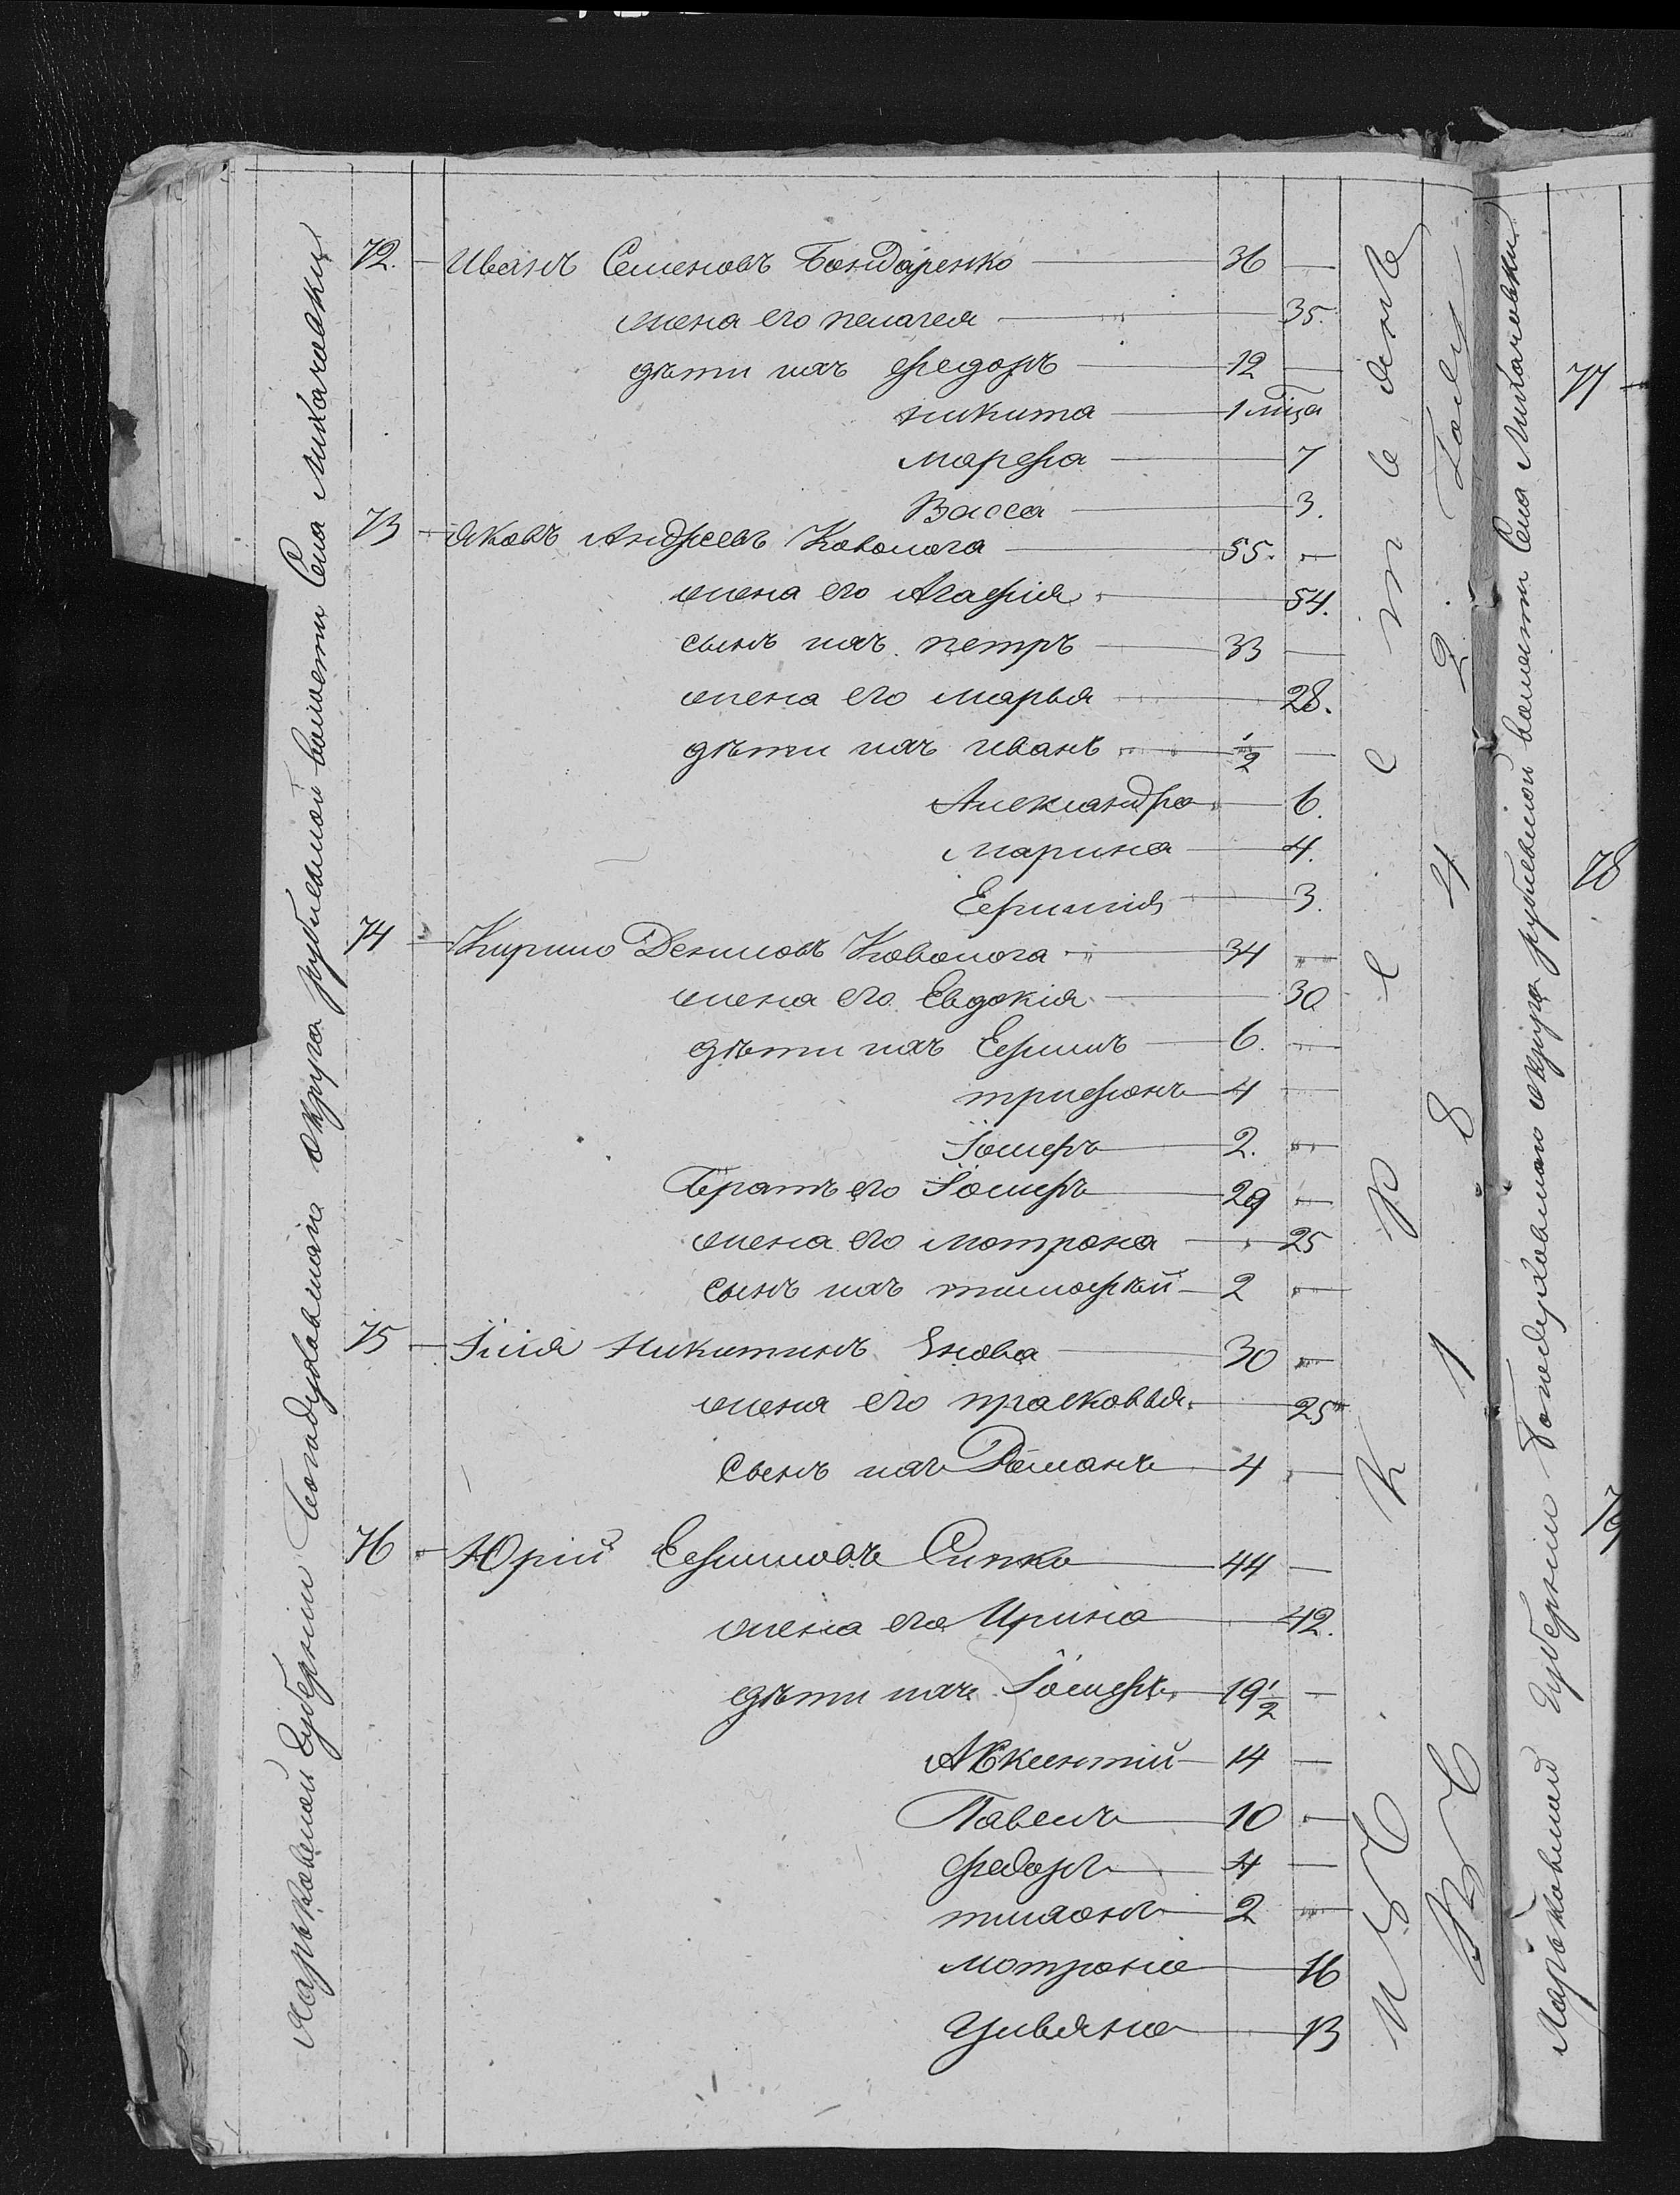 Харьковской Губерніи Богодуховскаго округа рублевской волости Села Михаловки
72. Иванъ Семеновъ Бондаренко 36
жена его пелагея 35.
дѣти ихъ Федоръ 12
никита 1 мѣца
марефа 7
Васса 3.
73 Яковъ Андреевъ Коволога 55.
жена его Агафія 54.
сынъ ихъ петръ 33
жена его марья 28.
дѣти ихъ иванъ 1/2
Александра 6.
Марина 4.
Ефимія 3.
74 Кирило Денисовъ Коволога 34
жена его Евдокія 30
дѣти ихъ Ефимъ 6.
трифонъ 4
Іосифъ 2.
Братъ его Іосифъ 29
жена его мотрона 25
сынъ ихъ тимофѣй 2
75 Илія Никитинъ 30
жена его прасковья 25
Сынъ ихъ Романъ 4
76 Юрій Ефимовъ Сипко 44
жена его Ирина 42.
дѣти ихъ Іосифъ 19 1/2
Авксентій 14
Павелъ 10
Федоръ 4
тихонъ 2
мотрона 16
Ульяна 13
Въ 1842 Году
77
78
79
Харьковской Губерніи Богодуховскаго округа рублевской волости Села Михаловки